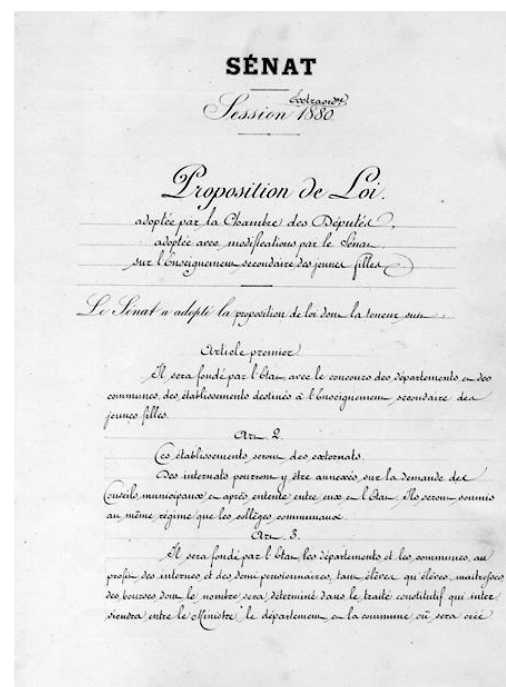 SÉNAT
Session Extraord.re 1880
Proposition de Loi.
adoptée par la Chambre des Députés,
adoptée avec modifications par le Sénat
sur l'Enseignement secondaire des jeunes filles
Le Sénat a adopté la proposition de loi dont la teneur suit :
Article premier
Il sera fondé par l'Etat, avec le concours des départements et des
communes, des établissements destinés à l'Enseignement secondaire des
jeunes filles.
Art. 2.
Ces établissements seront des externats.
Des internats pourront y être annexés sur la demande des
Conseils municipaux et après entente entre eux et l'Etat. Ils seront soumis
au même régime que les collèges communaux.
Art. 3.
Il sera fondé par l'Etat, les départements et les communes, au
profit des internes et des demi pensionnaires, tant élèves qu'élèves maîtresses
des bourses dont le nombre sera déterminé dans le traité constitutif qui inter
viendra entre le Ministre, le département et la commune où sera créé